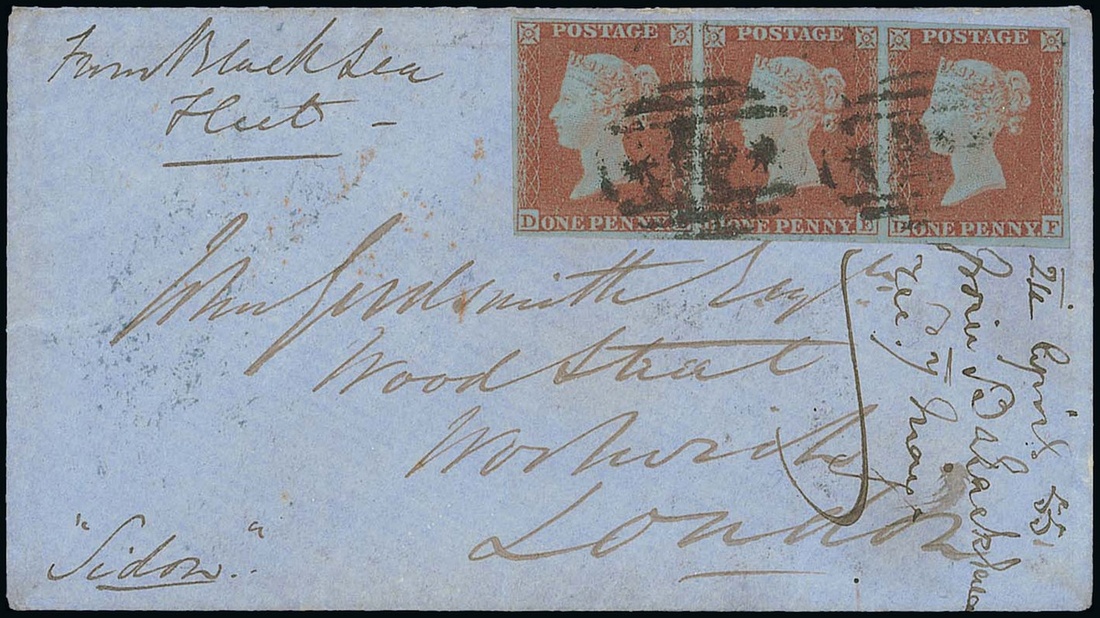 From Black Sea
Fleet -
POSTAGE POSTAGE POSTAGE
D ONE PENNY ONE PENNY E ONE PENNY F
John Goldsmith Esqr
Wood Street
Woolwich
London
"Sidon"
April 55
from Balaklava
Rec. May